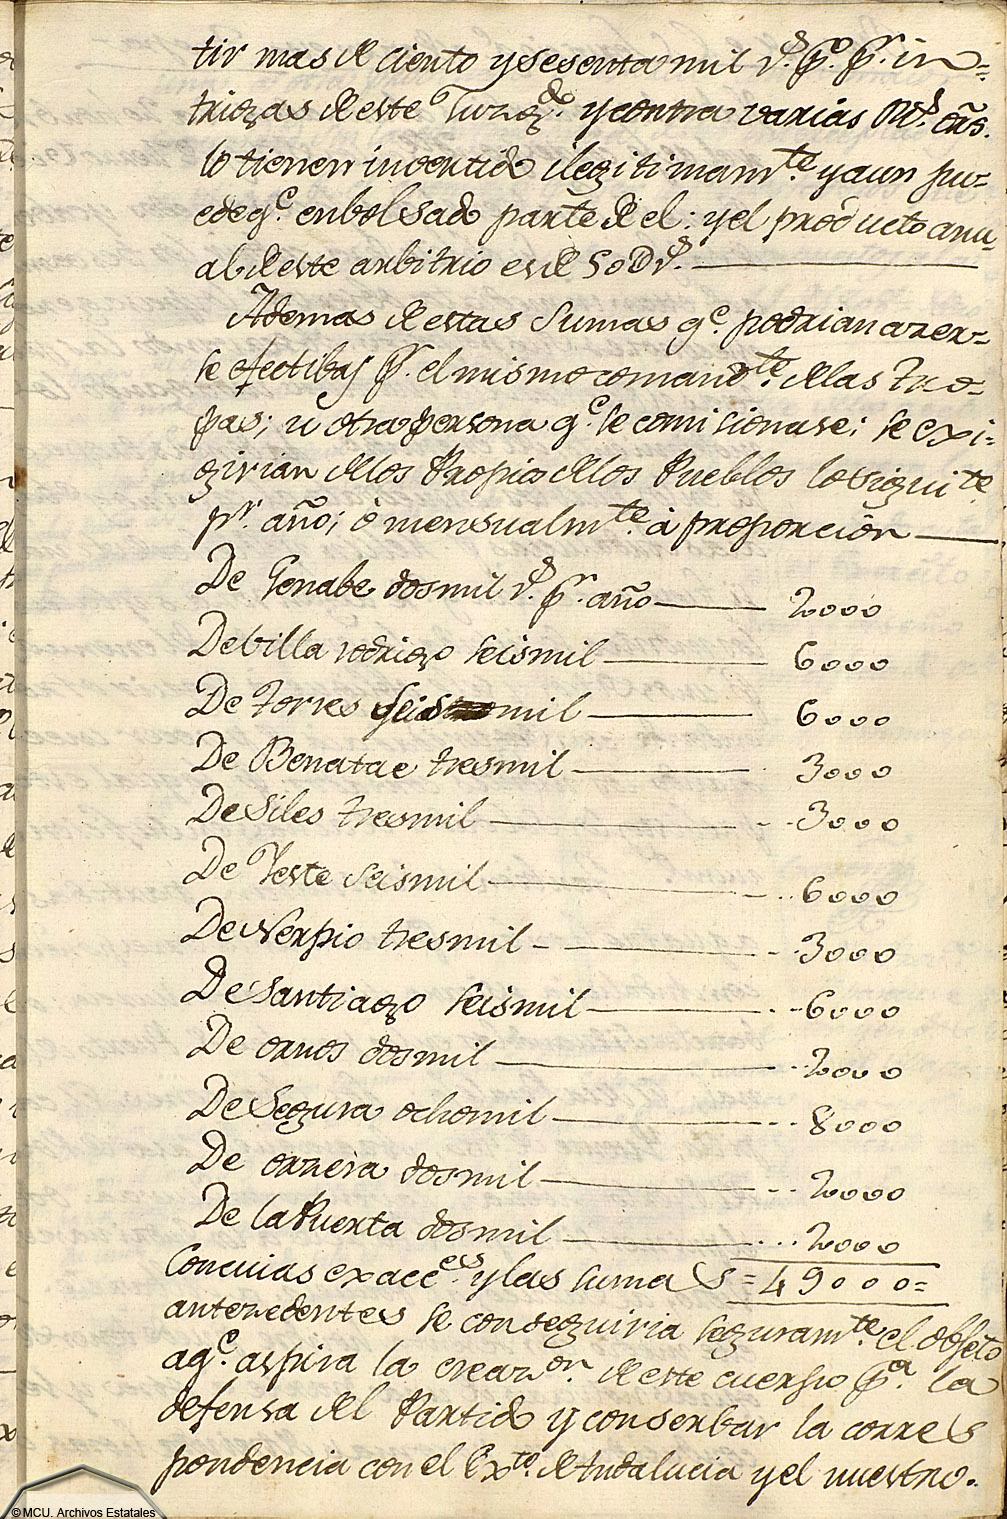 tir mas de ciento y sesenta mil r.s p.o p.r in=
trigas de este Juzg.do y contra varias Or.d en.s
lo tienen invertido ilegitimam.te y aun pu=
ede q.e enbolsado parte de el: y el producto anu
al de este arbitrio es de 50D r.s
Ademas de estas sumas q.e podrian azer=
se efectibas p.r el mismo comand.te de las tro=
pas; u otra persona q.e se comisionase; se exi=
girian de los Propios de los Pueblos lo siguite
p.r año; ò mensualm.te à proporcion
De Genabe dosmil r.s p.r año 2000
De villa rodrigo seismil 6000
De torres seis mil 6000
De Benatae tresmil 3000
De Siles tresmil 3000
De Yeste seismil 6000
De Nerpio tresmil 3000
De Santiago seismil 6000
De ornos dosmil 2000
De Segura ochomil 8000
De orzera dosmil 2000
De la Puerta dosmil 2000
Con cuias exacc.es y las sumas = 49000=
antezedentes se conseguiria seguram.te el objeto
a q.e aspira la creaz.on de este cuerpo p.a la
defensa del Partido y conserbar la corres
pondencia con el Ex.to de Andalucia y el nuestro.
© MCU. Archivos Estatales